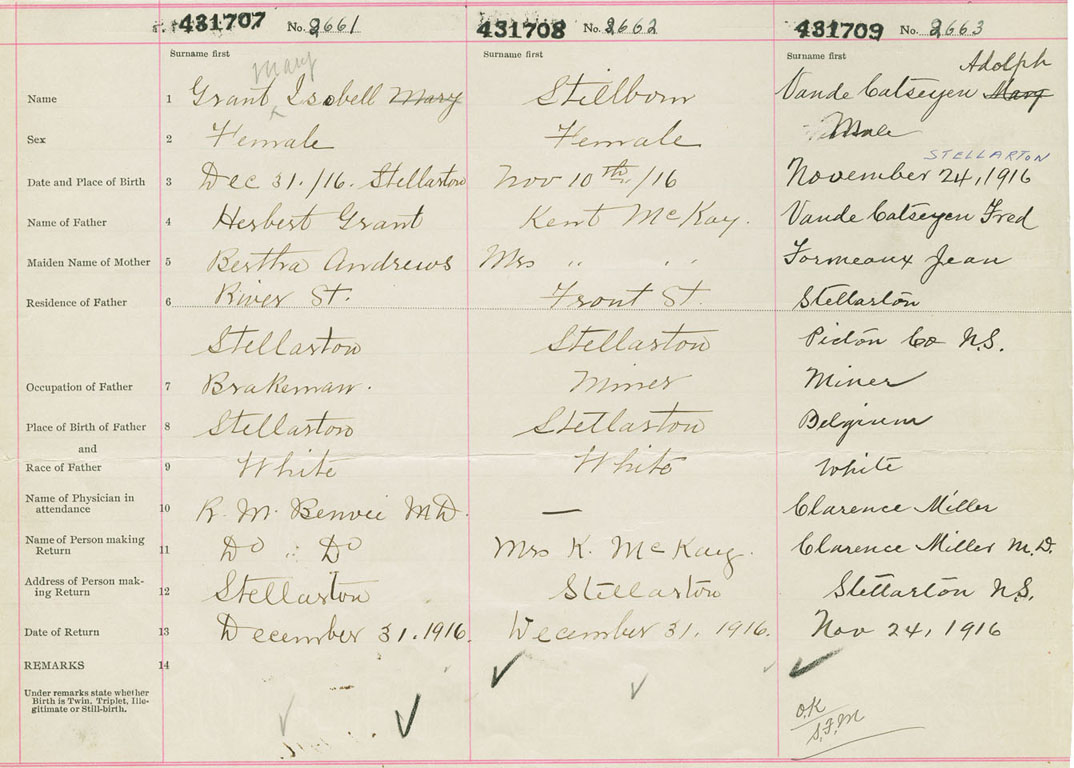 431707 No. 2661 431708 No. 2662 431709 No. 2663
Surname first Surname first Surname first
Mary Adolph
Name 1 Grant Isobell Mary Stillborn Vande Catseyen Mary
Sex 2 Female Female Male
STELLARTON
Date and Place of Birth 3 Dec 31./16. Stellarton Nov 10th/16 November 24, 1916
Name of Father 4 Herbert Grant Kent McKay. Vande Catseyen Fred
Maiden Name of Mother 5 Bertha Andrews Mrs " " Formeaux Jean
Residence of Father 6 River St. Front St. Stellarton
Stellarton Stellarton Pictou Co N.S.
Occupation of Father 7 Brakeman. Miner Miner
Place of Birth of Father 8 Stellarton Stellarton Belgium
and
Race of Father 9 White White White
Name of Physician in
attendance 10 R. M. Benvie MD. — Clarence Miller
Name of Person making
Return 11 Do " Do Mrs K. McKay. Clarence Miller M.D.
Address of Person mak-
ing Return 12 Stellarton Stellarton Stellarton N.S.
Date of Return 13 December 31. 1916. December 31, 1916. Nov 24, 1916
REMARKS 14
Under remarks state whether
Birth is Twin, Triplet, Ille-
gitimate or Still-birth.
O.K
S.F.M